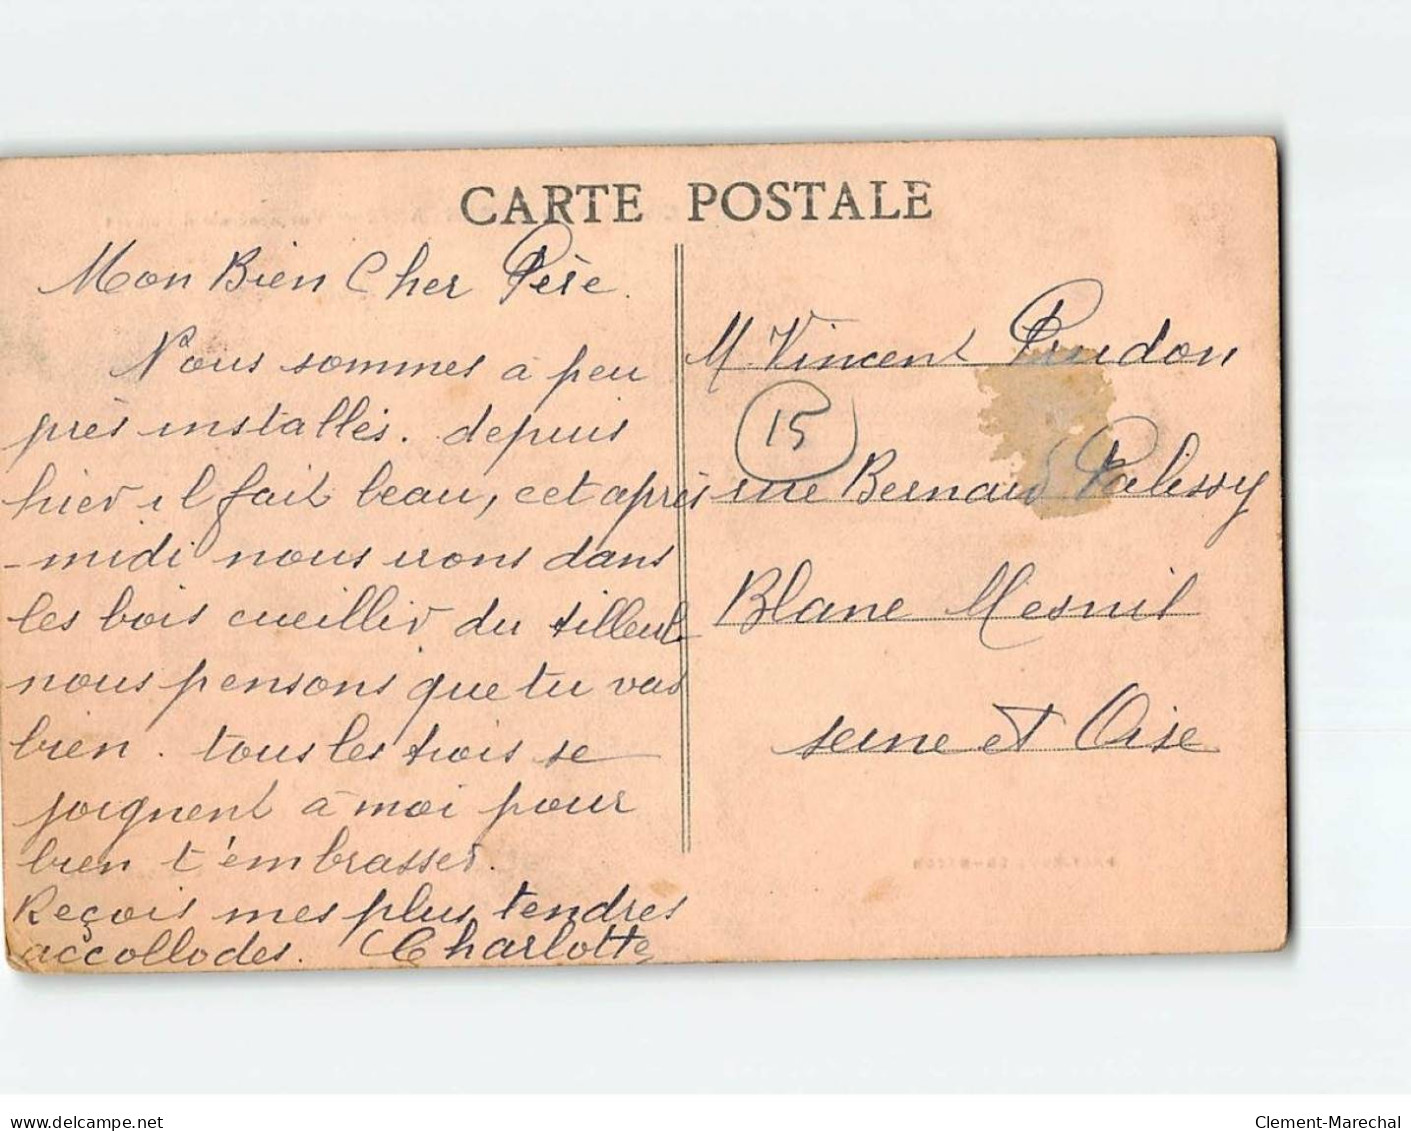 CARTE POSTALE
Mon Bien Cher Père.
Nous sommes à peu
près installés. depuis
hier il fait beau, cet après
-midi nous irons dans
les bois cueillir du tilleul
nous pensons que tu vas
bien. tous les trois se
joignent à moi pour
bien t'embrasser.
Reçois mes plus tendres
accollodes. Charlotte
M. Vincent
15
rue Bernard Palissy
Blanc Mesnil
seine et Oise
delcampe.net
Clement-Marechal